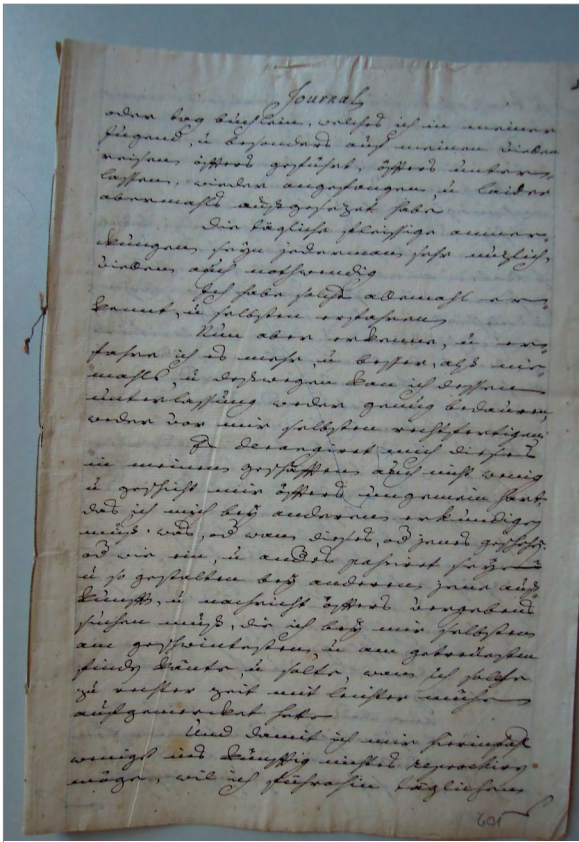 Journal
oder tag büchlein, welches ich in meiner
Jugend, u besonders auf meinen vielen
reisen öffters geführt, öffters unter-
lassen, wieder angefangen, u leider
abermahls außgesezet habe
Die tägliche fleissige anmer-
kungen seyn jederman sehr nuzlich,
vielen auch nothwendig
Ich habe solches allemahl er-
kennt, u selbsten erfahren
Nun aber erkenne, u er-
fahre ich es mehr, u besser, alß nie-
mahls, u deßwegen kan ich dessen
unterlassung weder genug bedauren,
weder vor mir selbsten rechtfertigen
Es derangiret mich dieses
in meinen geschäfften auch nicht wenig
u geschicht mir öffters ungemein hart,
das ich mich bey anderen erkundigen
muß, was, od wann dieses, od jenes geschehen,
od wie ein, u anders passiret seye
u so gestalten bey anderen jene auß-
kunfft, u nachricht öffters vergebens
suchen muß, die ich bey mir selbsten
am geschwintesten, u am getreuesten
finden könte, u solte, wann ich solche
zu rechter zeit mit leichter mühe
aufgemerket hete
Und damit ich mir hierin
wenigst ins künfftig nichts reprochiren
möge, wil ich führohin täglichen
601